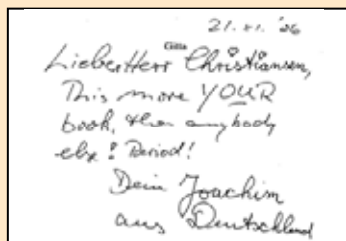 21.XI.'06
Gitta
Lieber Herr Christiansen,
This more YOUR
book, then anybody
else! Period!
Dein Joachim
aus Deutschland